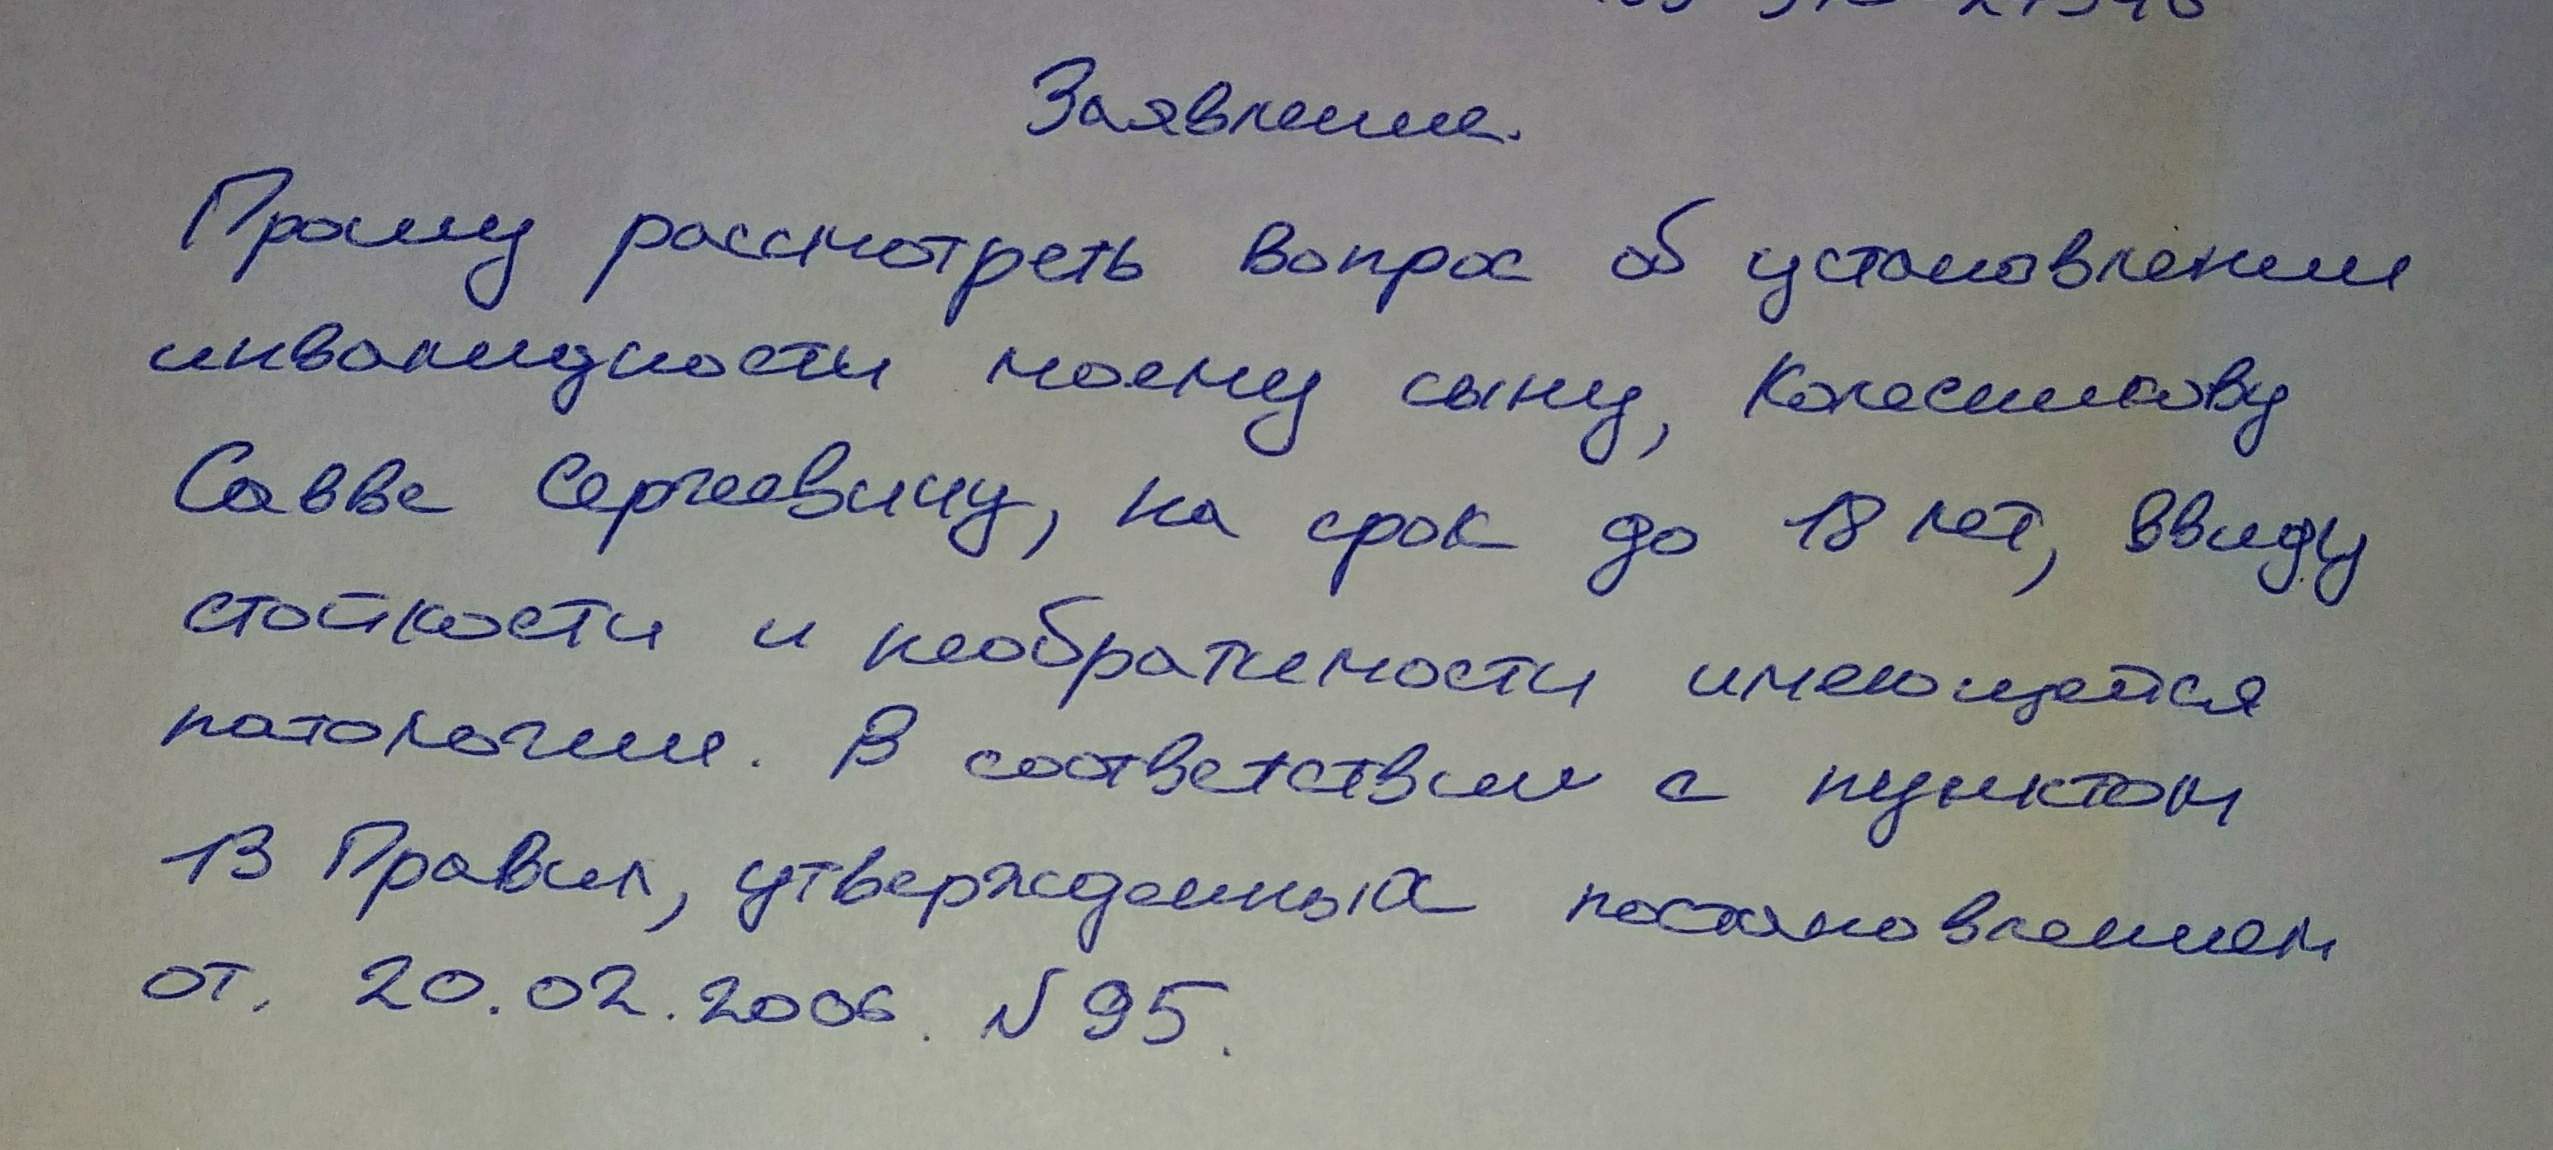 Заявление.
Прошу рассмотреть вопрос об установлении
инвалидности моему сыну, Колесникову
Савве Сергеевичу, на срок до 18 лет, ввиду
стойкости и необратимости имеющейся
патологии. В соответствии с пунктом
13 Правил, утвержденных постановлением
от. 20.02.2006. N 95.